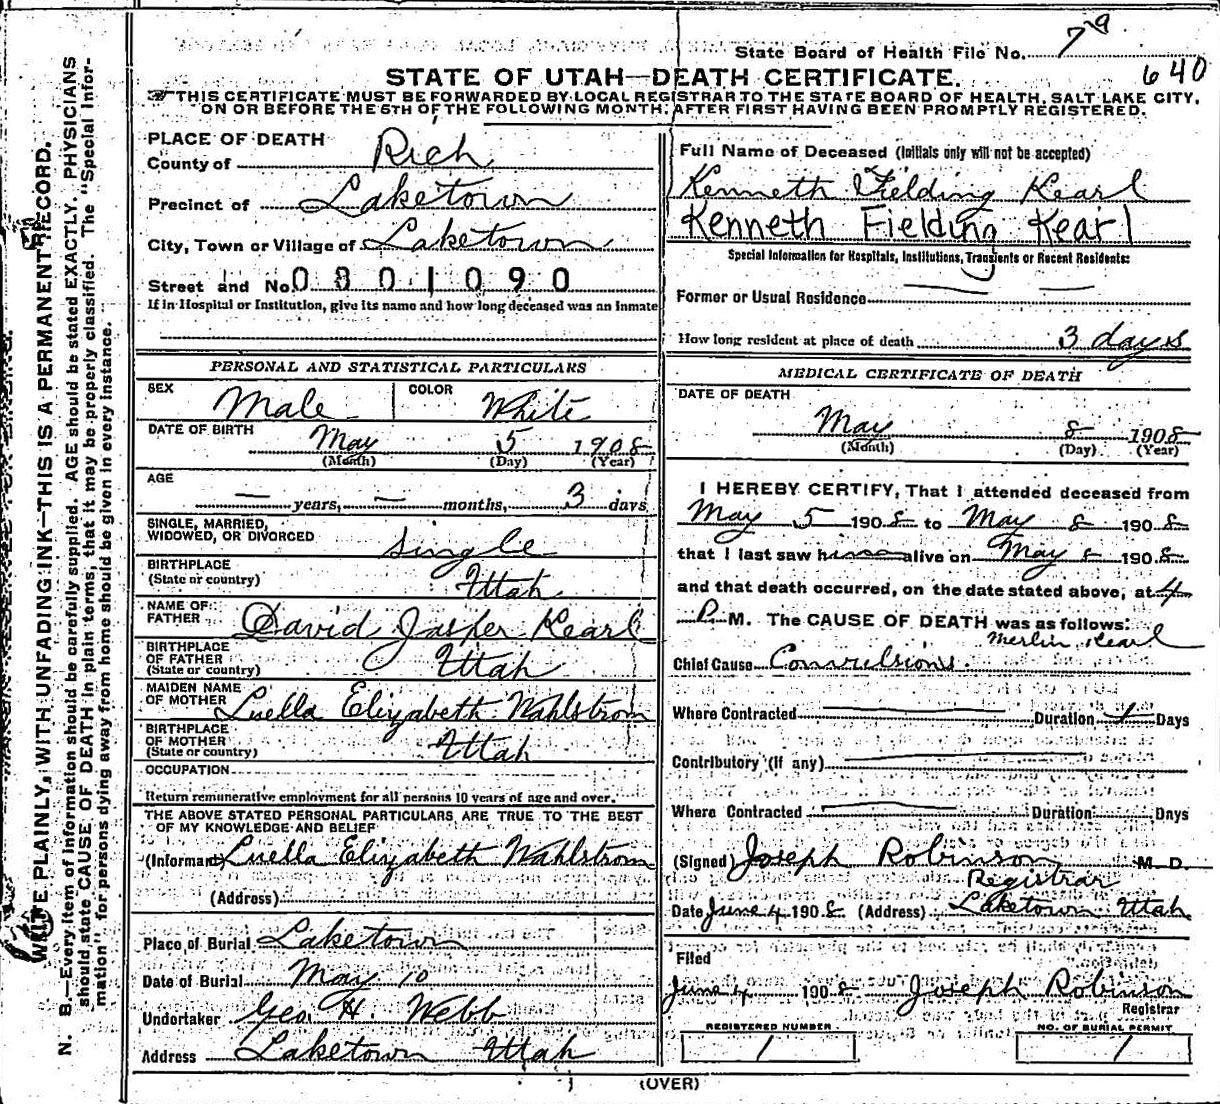 State Board of Health File No. 79
640
STATE OF UTAH—DEATH CERTIFICATE.
THIS CERTIFICATE MUST BE FORWARDED BY LOCAL REGISTRAR TO THE STATE BOARD OF HEALTH, SALT LAKE CITY,
ON OR BEFORE THE 5TH OF THE FOLLOWING MONTH, AFTER FIRST HAVING BEEN PROMPTLY REGISTERED.
WRITE PLAINLY, WITH UNFADING INK—THIS IS A PERMANENT RECORD.
N. B.—Every item of information should be carefully supplied. AGE should be stated EXACTLY. PHYSICIANS
should state CAUSE OF DEATH in plain terms, that it may be properly classified. The "Special Infor-
mation" for persons dying away from home should be given in every instance.
PLACE OF DEATH
County of Rich
Precinct of Laketown
City, Town or Village of Laketown
Street and No. 0801090
If in Hospital or Institution, give its name and how long deceased was an inmate
PERSONAL AND STATISTICAL PARTICULARS
SEX Male COLOR White
DATE OF BIRTH May 5 1908
(Month) (Day) (Year)
AGE
— years, — months, 3 days
SINGLE, MARRIED,
WIDOWED, OR DIVORCED Single
BIRTHPLACE
(State or country) Utah
NAME OF
FATHER David Jasper Kearl
BIRTHPLACE
OF FATHER
(State or country) Utah
MAIDEN NAME
OF MOTHER Luella Elizabeth Wahlstrom
BIRTHPLACE
OF MOTHER
(State or country) Utah
OCCUPATION
Return remunerative employment for all persons 10 years of age and over.
THE ABOVE STATED PERSONAL PARTICULARS ARE TRUE TO THE BEST
OF MY KNOWLEDGE AND BELIEF
(Informant) Luella Elizabeth Wahlstrom
(Address)
Place of Burial Laketown
Date of Burial May 10
Undertaker Geo. H. Webb
Address Laketown Utah
Full Name of Deceased (Initials only will not be accepted)
Kenneth Fielding Kearl
Kenneth Fielding Kearl
Special Information for Hospitals, Institutions, Transients or Recent Residents:
Former or Usual Residence
How long resident at place of death 3 days
MEDICAL CERTIFICATE OF DEATH
DATE OF DEATH
May 8 1908
(Month) (Day) (Year)
I HEREBY CERTIFY, That I attended deceased from
May 5 1908 to May 8 1908
that I last saw him alive on May 8 1908
and that death occurred, on the date stated above, at 4
P. M. The CAUSE OF DEATH was as follows:
Merlin Kearl
Chief Cause Convulsions.
Where Contracted Duration 1 Days
Contributory (if any)
Where Contracted Duration Days
(Signed) Joseph Robinson M. D.
Registrar
Date June 4 1908 (Address) Laketown Utah
Filed
June 4 1908 Joseph Robinson
Registrar
REGISTERED NUMBER
1
NO. OF BURIAL PERMIT
1
(OVER)